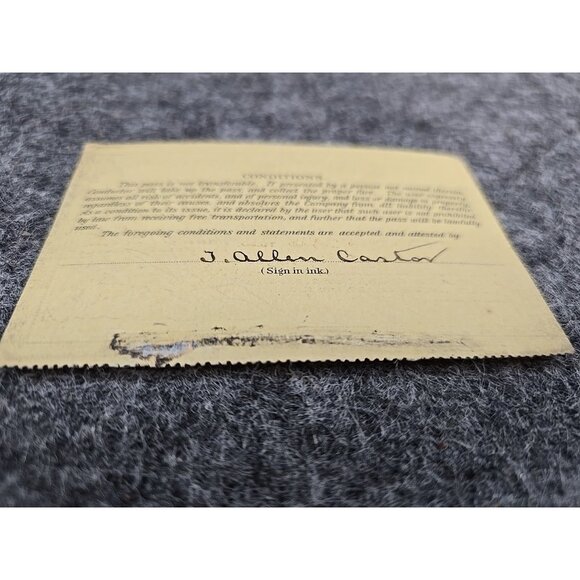 CONDITIONS
This pass is not transferable. If presented by a person not named thereon,
Conductor will take up the pass and collect the proper fare. The user expressly
assumes all risk or accidents, and if personal injury, and loss or damage to property
regardless of their cause, and absolves the Company from any liability.
As a condition to its issue, it is declared by the user that such user is not prohibited
by law from receiving free transportation, and further that the pass will be lawfully
used.
The foregoing conditions and statements are accepted and attested by
J. Allen Castor
(Sign in ink.)